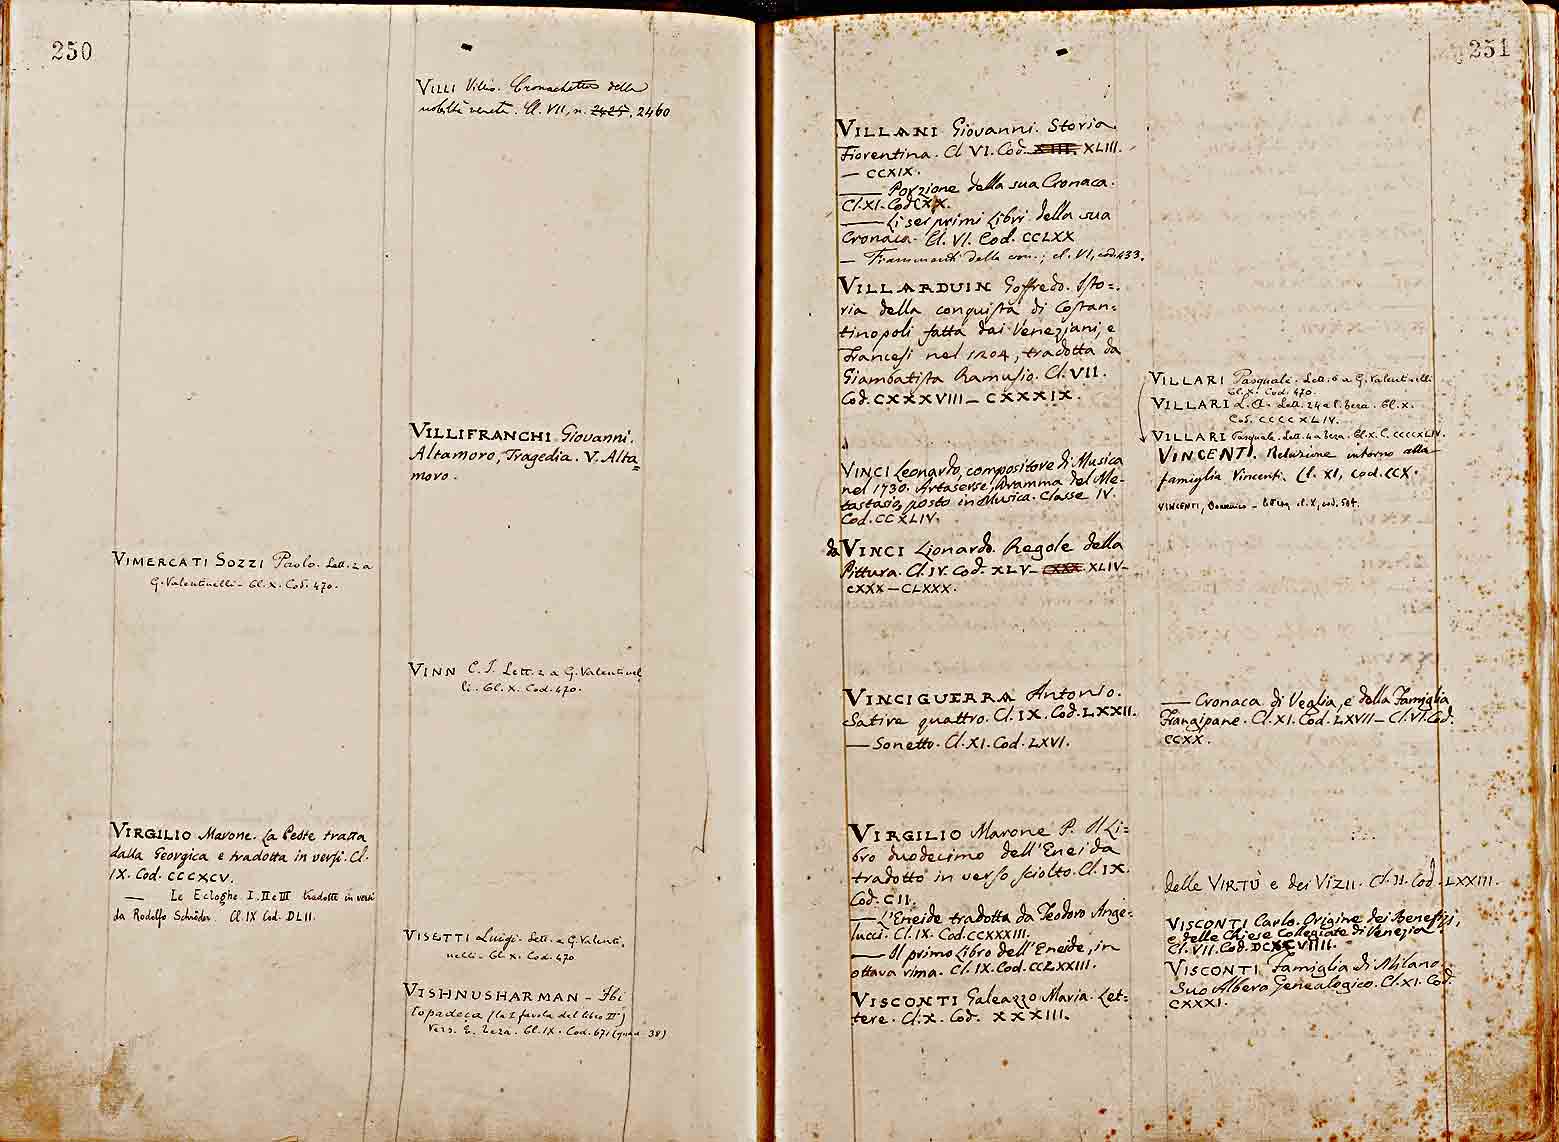 250
VIMERCATI SOZZI Paolo. Lett. 2 a
G. Valentinelli - Cl. X. Cod. 470.
VIRGILIO Marone. La Peste tratta
dalla Georgica e tradotta in versi. Cl.
IX. Cod. CCCXCV.
— Le Ecloghe I. II e III tradotte in versi
da Rodolfo Schröder. Cl. IX Cod. DLII.
VILLI Cronachetta della
nobiltà veneta. Cl. VII, n. 2425, 2460
VILLIFRANCHI Giovanni.
Altamoro, Tragedia. V. Alta=
moro.
VINN C. I. Lett. 2 a G. Valentinel
li. Cl. X. Cod. 470.
VISETTI Luigi. Lett. a G. Valenti.
nelli. Cl. X. Cod. 470
VISHNUSHARMAN - Ibi
topadeca (la I favola del libro II°)
Vers. E. Teza. Cl. IX. Cod. 671 (quad 38)
251
VILLANI Giovanni. Storia
Fiorentina. Cl VI. Cod. XIII. XLIII.
— CCXIX.
— Porzione della sua Cronaca.
Cl. XI. Cod CXX.
— Li sei primi Libri della sua
Cronaca. Cl. VI. Cod. CCLXX
— Frammenti della ; cl. VI, cod. 433.
VILLARDUIN Goffredo. Sto=
ria della conquista di Costan=
tinopoli fatta dai Veneziani, e
Francesi nel 1204, tradotta da
Giambatista Ramusio. Cl. VII.
Cod. CXXXVIII — CXXXIX.
VINCI Leonardo, compositore di Musica
nel 1730. Artaserse, Dramma del Me-
tastasio, posto in Musica. Classe IV.
Cod. CCXLIV.
da VINCI Lionardo. Regole della
Pittura. Cl. IV. Cod. XLV — CXXX. XLIV —
CXXX — CLXXX.
VINCIGUERRA Antonio.
Satire quattro. Cl. IX. Cod. LXXII.
— Sonetto. Cl. XI. Cod. LXVI.
VIRGILIO Marone P. Il Li=
bro duodecimo dell'Eneida
tradotto in verso sciolto. Cl. IX.
Cod. CII.
— L'Eneide tradotta da Teodoro Ange=
lucci. Cl. IX. Cod. CCXXXIII.
— Il primo Libro dell'Eneide, in
ottava rima. Cl. IX. Cod. CCLXXIII.
VISCONTI Galeazzo Maria. Let=
tere. Cl. X. Cod. XXXIII.
VILLARI Pasquale. Lett. 6 a G. Valentinelli
Cl. X. Cod. 470.
VILLARI L. A. Lett. 24 a E. Teza. Cl. X.
Cod. CCCCXLIV.
VILLARI Pasquale. Lett. 4 a Teza. Cl. X. C. CCCCXLIV.
VINCENTI. Relazione intorno alla
famiglia Vincenti. Cl. XI, Cod. CCX.
VINCENTI, Domenico - cl. X, cod. 504.
— Cronaca di Veglia, e della Famiglia
Frangipane. Cl. XI. Cod. LXVII — Cl. VI. Cod.
CCXX.
delle VIRTÙ e dei VIZII. Cl. II. Cod. LXXIII.
VISCONTI Carlo. Origine dei Benefizj,
e delle Chiese Collegiate di Venezia.
Cl. VII. Cod. DCXCVIIII.
VISCONTI Famiglia di Milano.
Suo Albero Genealogico. Cl. XI. Cod.
CXXXI.